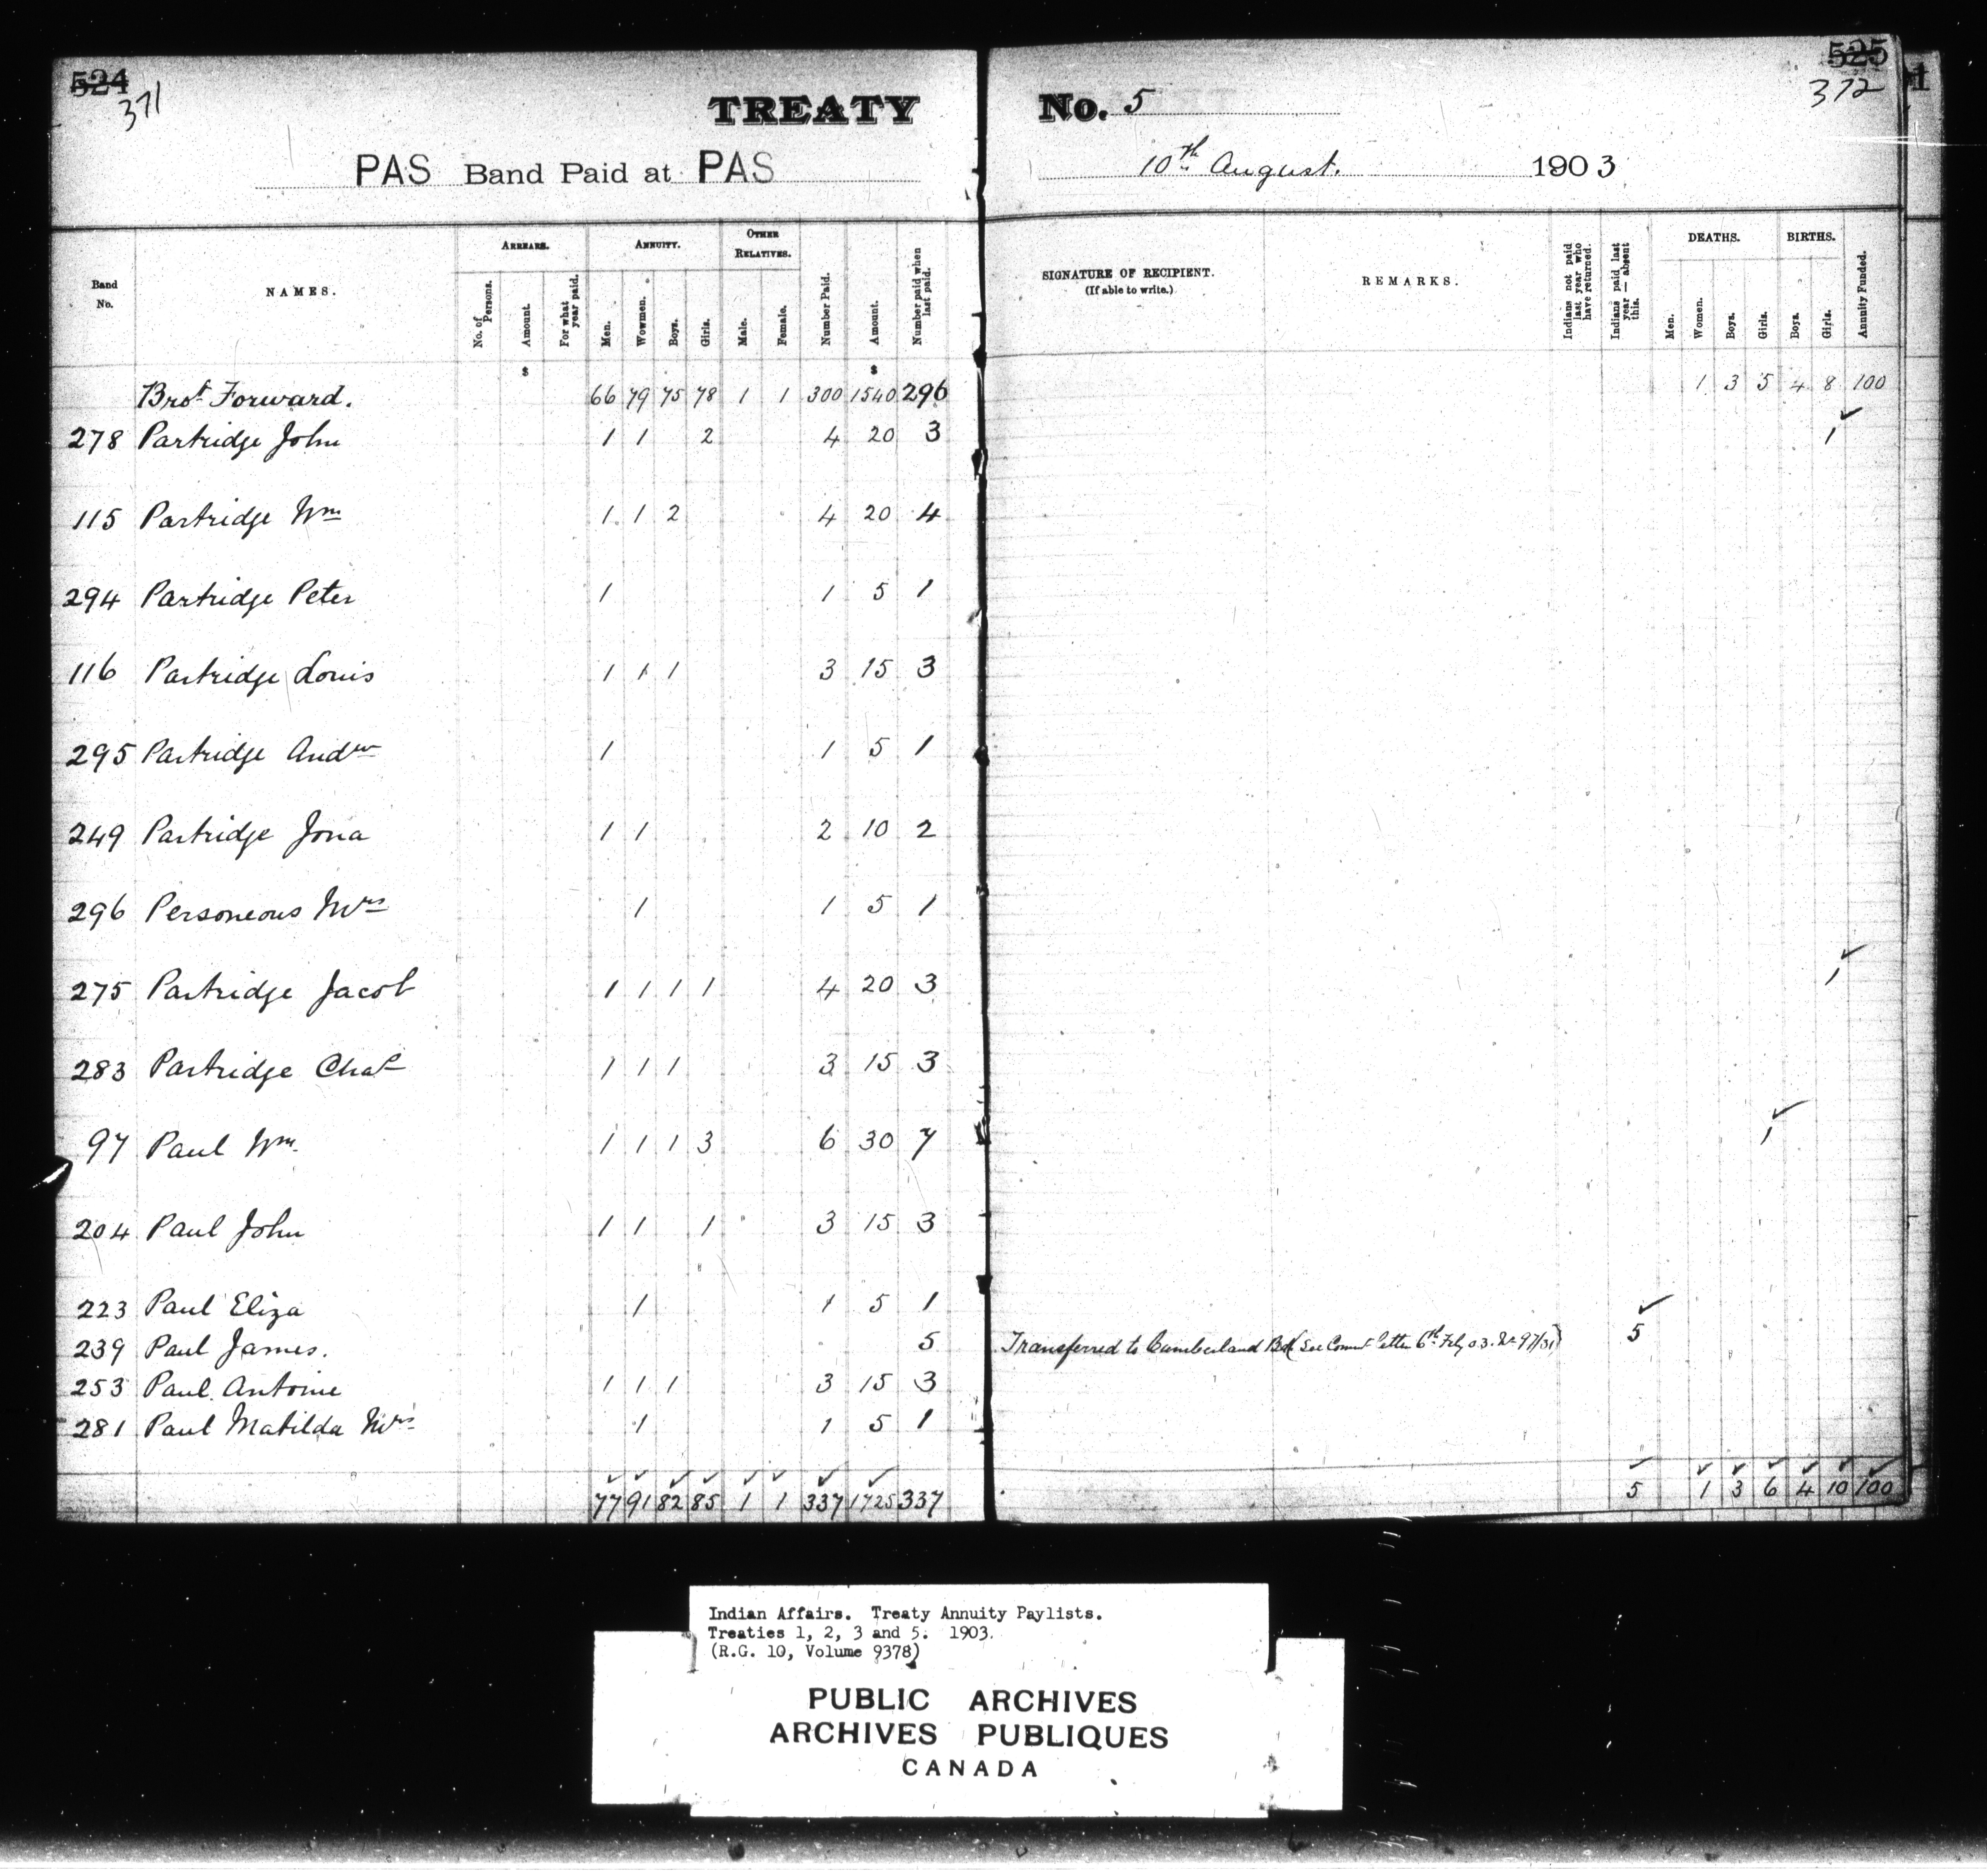 524
371
TREATY No. 5
525
372
PAS Band Paid at PAS 10th August. 1903
Band No. NAMES. ARREARS. No. of Persons. Amount. For what year paid. ANNUITY. Men. Wowmen. Boys. Girls. OTHER RELATIVES. Male. Female. Number Paid. Amount. Number paid when last paid. SIGNATURE OF RECIPIENT. (If able to write.) REMARKS. Indians not paid last year who have returned. Indians paid last year — absent this. DEATHS. Men. Women. Boys. Girls. BIRTHS. Boys. Girls. Annuity Funded.
$ $
Brot Forward. 66 79 75 78 1 1 300 1540 296 1 3 5 4 8 100
278 Partridge John 1 1 2 4 20 3 1 ✓
115 Partridge Wm 1 1 2 4 20 4
294 Partridge Peter 1 1 5 1
116 Partridge Louis 1 1 1 3 15 3
295 Partridge Andw 1 1 5 1
249 Partridge Jona 1 1 2 10 2
296 Personeous Mrs 1 1 5 1
275 Partridge Jacob 1 1 1 1 4 20 3 1 ✓
283 Partridge Chas 1 1 1 3 15 3
97 Paul Wm. 1 1 1 3 6 30 7 1 ✓
204 Paul John 1 1 1 3 15 3
223 Paul Eliza 1 1 5 1
239 Paul James. 5 Transferred to Cumberland Bd (See Commr letter 6th Feby 03. No 97/31) 5 ✓
253 Paul Antoine 1 1 1 3 15 3
281 Paul Matilda Mrs 1 1 5 1
77 91 82 85 1 1 337 1725 337 5 1 3 6 4 10 100
Indian Affairs. Treaty Annuity Paylists.
Treaties 1, 2, 3 and 5. 1903.
(R.G. 10, Volume 9378)
PUBLIC ARCHIVES
ARCHIVES PUBLIQUES
CANADA